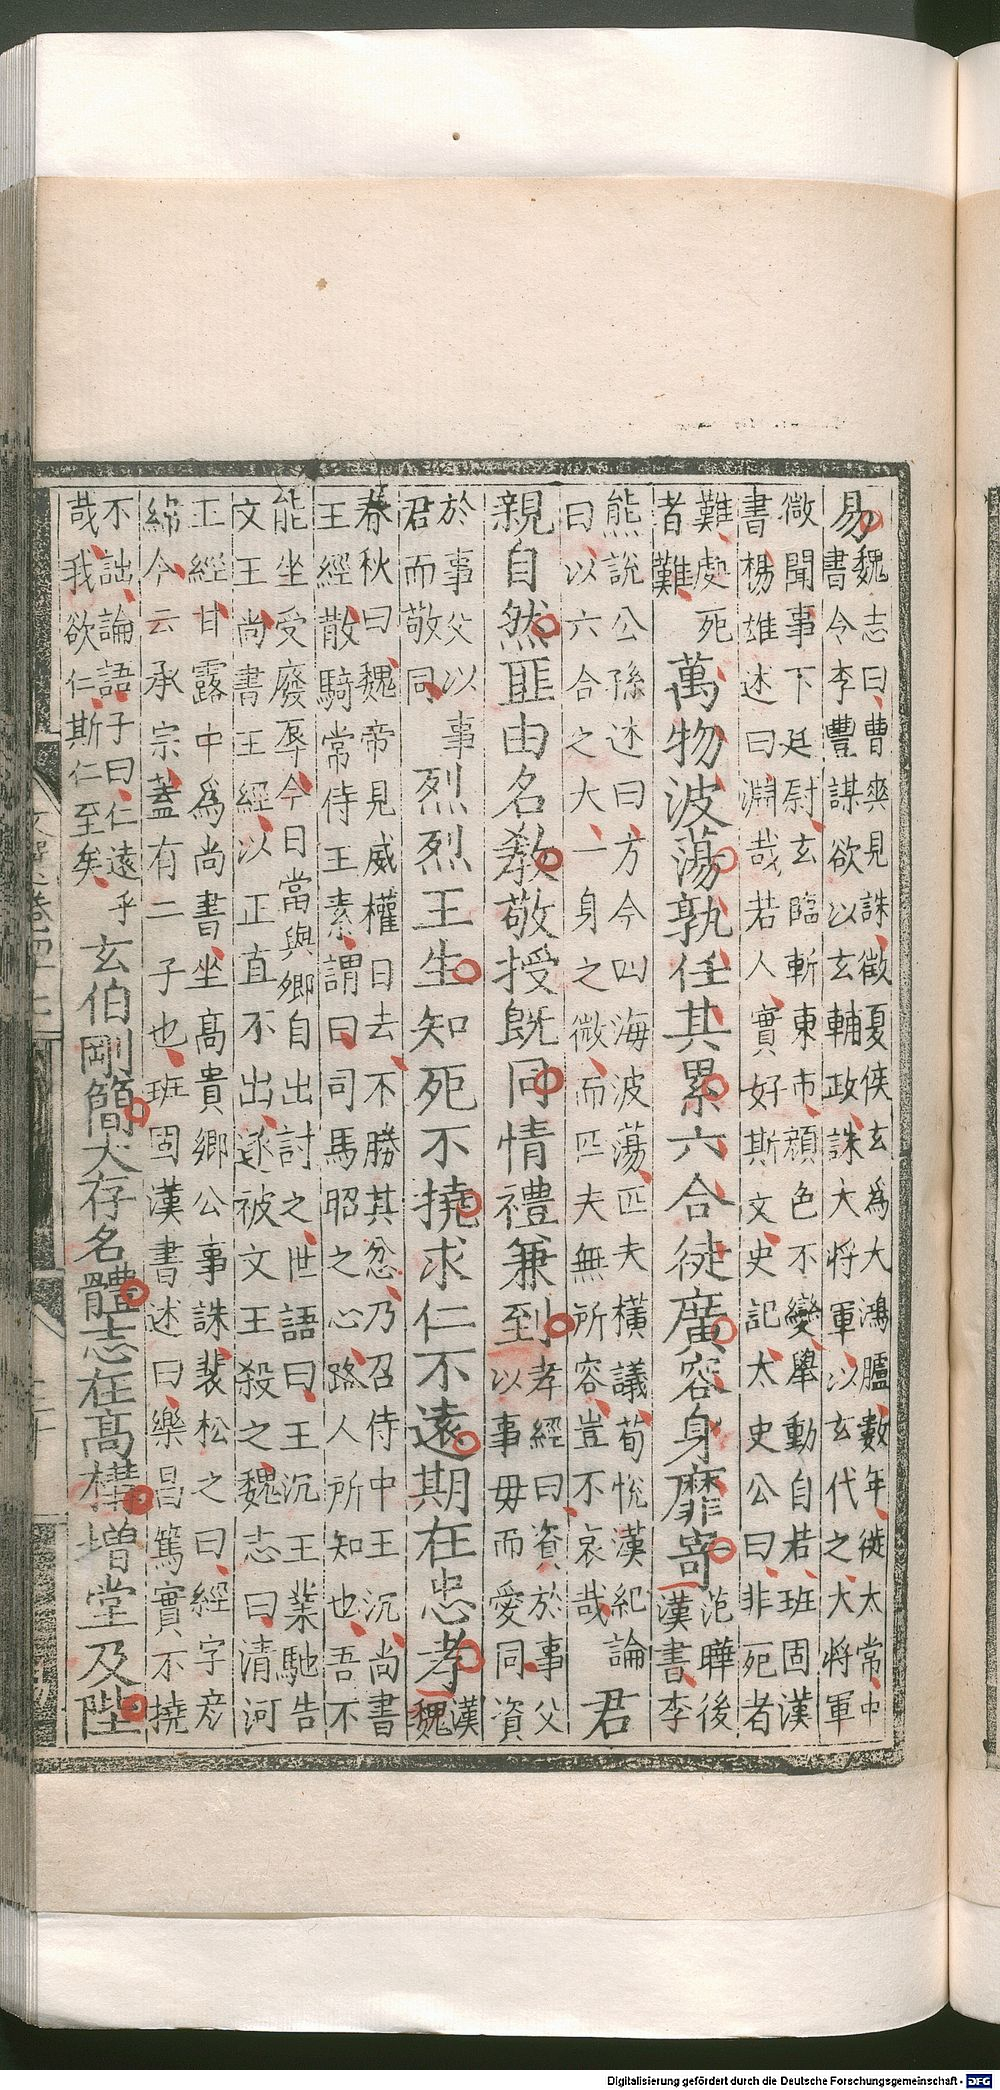 易
魏志曰曹爽見誅徵夏侯玄爲大鴻臚數年徙太常中
書令李豐謀欲以玄輔政誅大將軍以玄代之大將軍
微聞事下廷尉玄臨斬東市顔色不變舉動自若班固漢
書楊雄述曰淵哉若人實好斯文史記太史公曰非死者
難處死
者難
萬物波蕩孰任其累六合徒廣容身靡寄
范曄後
漢書李
熊說公孫述曰方今四海波蕩匹夫橫議荀悅漢紀論
曰以六合之大一身之微而匹夫無所容豈不哀哉
君
親自然匪由名教敬授既同情禮兼到
孝經曰資於事父
以事母而愛同資
於事父以事
君而敬同
烈烈王生知死不撓求仁不遠期在忠孝
漢
魏
春秋曰魏帝見威權日去不勝其忿乃召侍中王沉尚書
王經散騎常侍王素謂曰司馬昭之心路人所知也吾不
能坐受廢辱今日當與卿自出討之世語曰王沉王業馳告
文王尚書王經以正直不出遂被文王殺之魏志曰清河
王經甘露中爲尚書坐高貴鄉公事誅裴松之曰經字彥
綿今云承宗蓋有二子也班固漢書述曰樂昌篤實不撓
不詘論語子曰仁遠乎
哉我欲仁斯仁至矣
玄伯剛簡大存名體志在高構增堂及陛
Digitalisierung gefördert durch die Deutsche Forschungsgemeinschaft - DFG